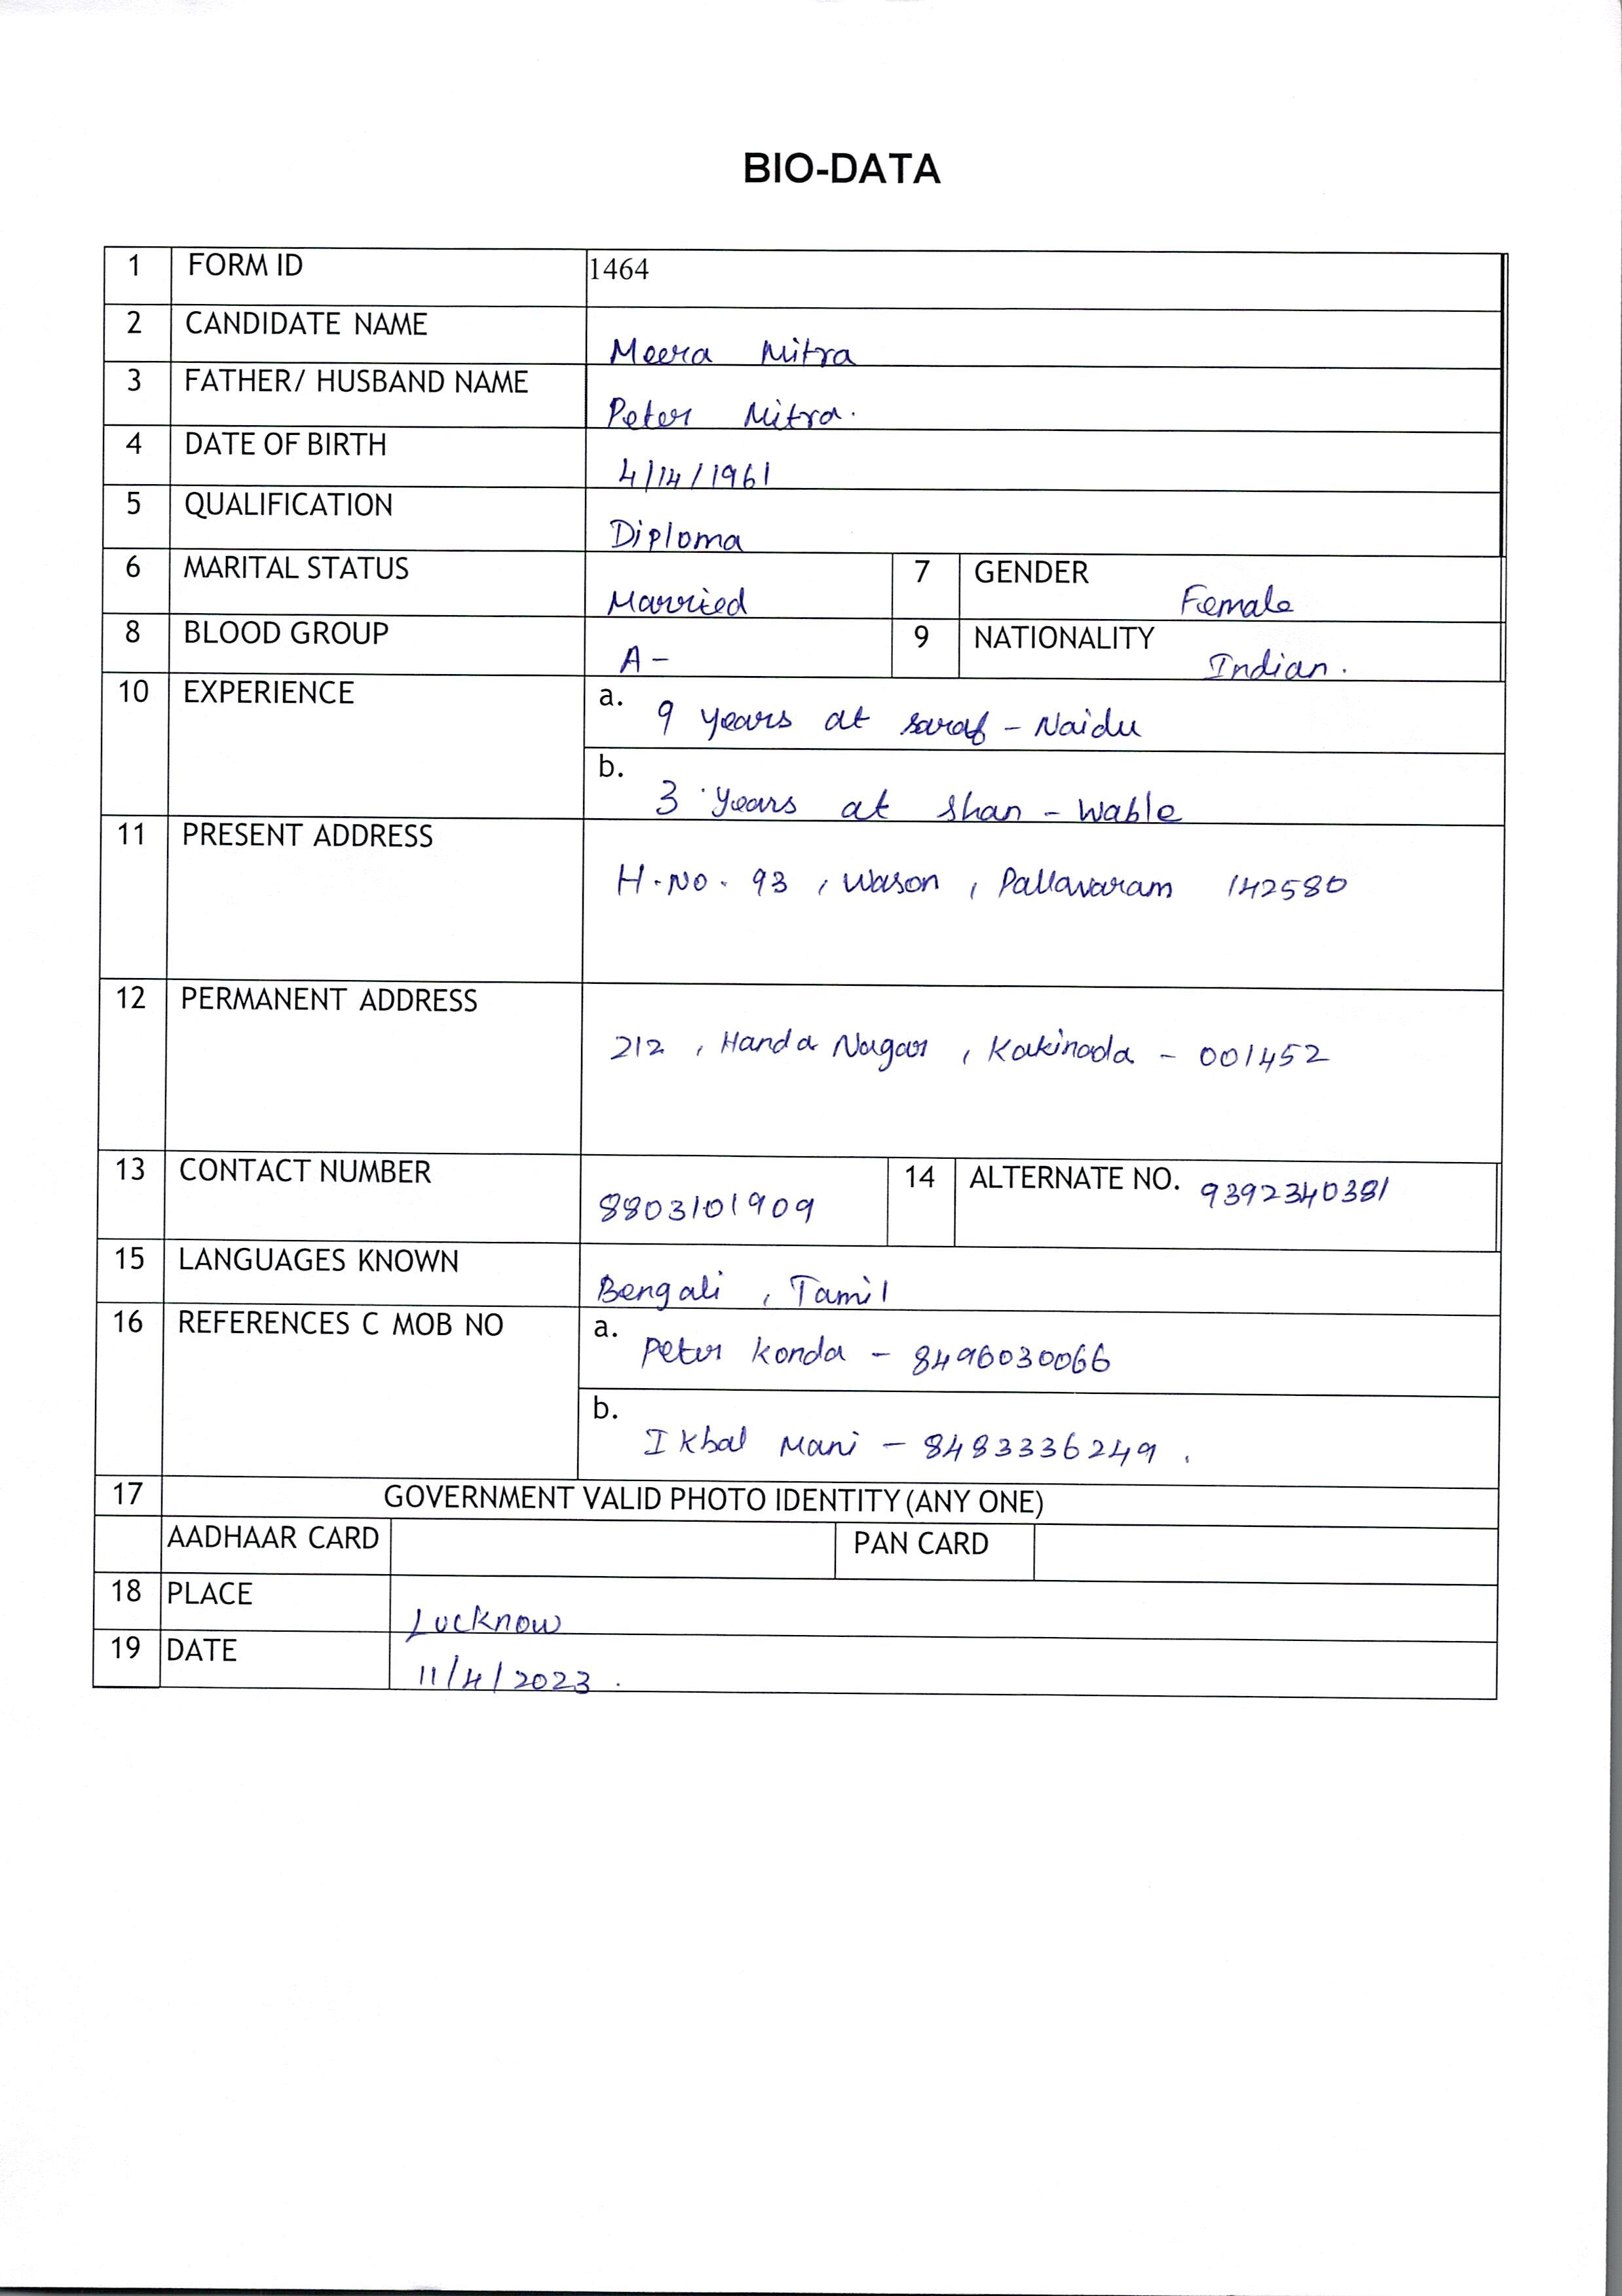 BIO-DATA
1 FORM ID 1464
2 CANDIDATE NAME Meera Mitra
3 FATHER/ HUSBAND NAME Peter Mitra.
4 DATE OF BIRTH 4/14/1961
5 QUALIFICATION Diploma
6 MARITAL STATUS Married 7 GENDER Female
8 BLOOD GROUP A- 9 NATIONALITY Indian.
10 EXPERIENCE a. 9 years at saraf - Naidu
b. 3 years at Shan - Wable
11 PRESENT ADDRESS
H.No. 93, Wason, Pallavaram 142580
12 PERMANENT ADDRESS
212, Handa Nagar, Kakinada - 001452
13 CONTACT NUMBER 8803101909 14 ALTERNATE NO. 9392340381
15 LANGUAGES KNOWN Bengali, Tamil
16 REFERENCES C MOB NO a. Peter Konda - 8496030066
b. Ikbal Mani - 8483336249.
17 GOVERNMENT VALID PHOTO IDENTITY (ANY ONE)
AADHAAR CARD PAN CARD
18 PLACE Lucknow
19 DATE 11/4/2023.